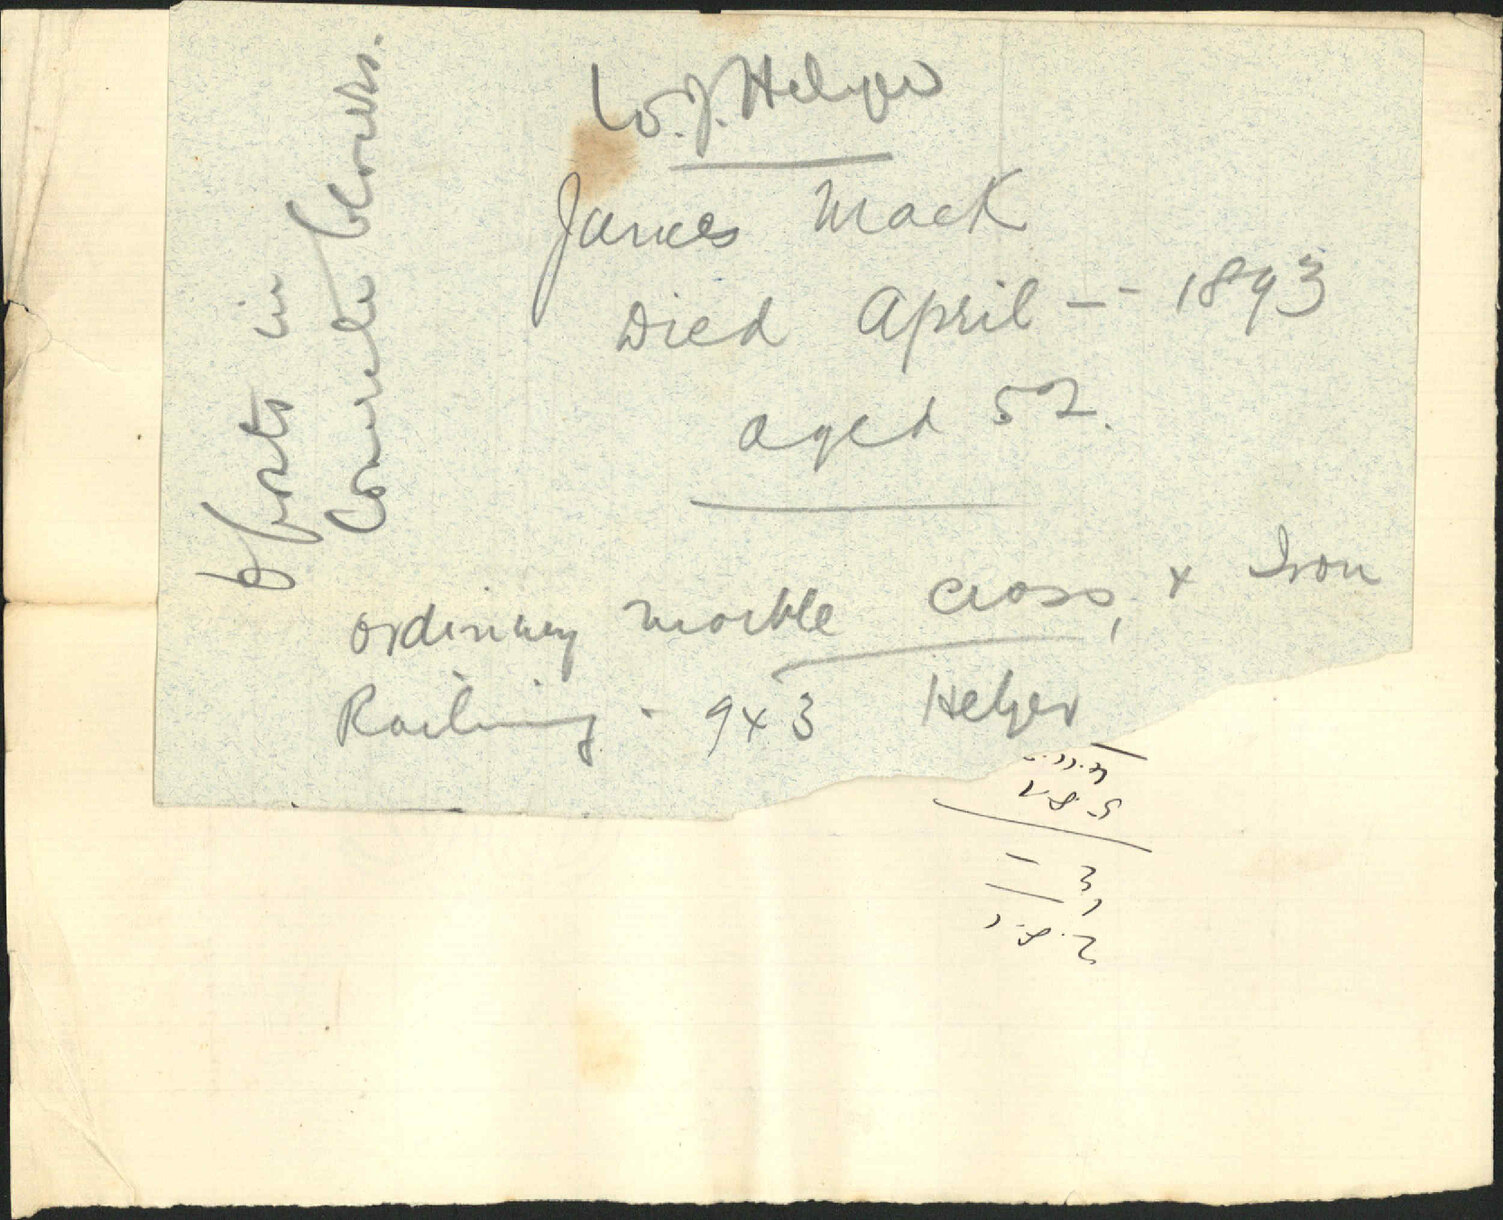 W. J. Helyer
James Mack
Died April -- 1893
aged 52.
ordinary marble cross, + Iron
Railing - 9 x 3 Helyer
6 posts in
Concrete blocks.